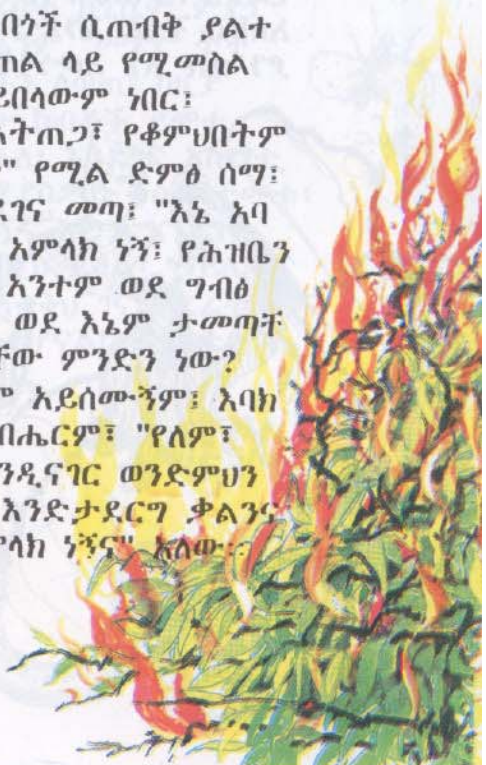 በጎች ሲጠብቅ ያልተ
ጠል ላይ የሚመስል
ይበላውም ነበር፤
አትጠጋ፣ የቆምህበትም
" የሚል ድምፅ ሰማ፤
ደገና መጣ፤ "እኔ አባ
አምላክ ነኝ፤ የሕዝቤን
አንተም ወደ ግብፅ
ወደ እኔም ታመጣቸ
ቸው ምንድን ነው?
ም አይሰሙኝም፤ እባክ
በሔርም፣ "የለም፣
ንዲናገር ወንድምህን
እንድታደርግ ቃልንና
ምላክ ነኝና" አለው።